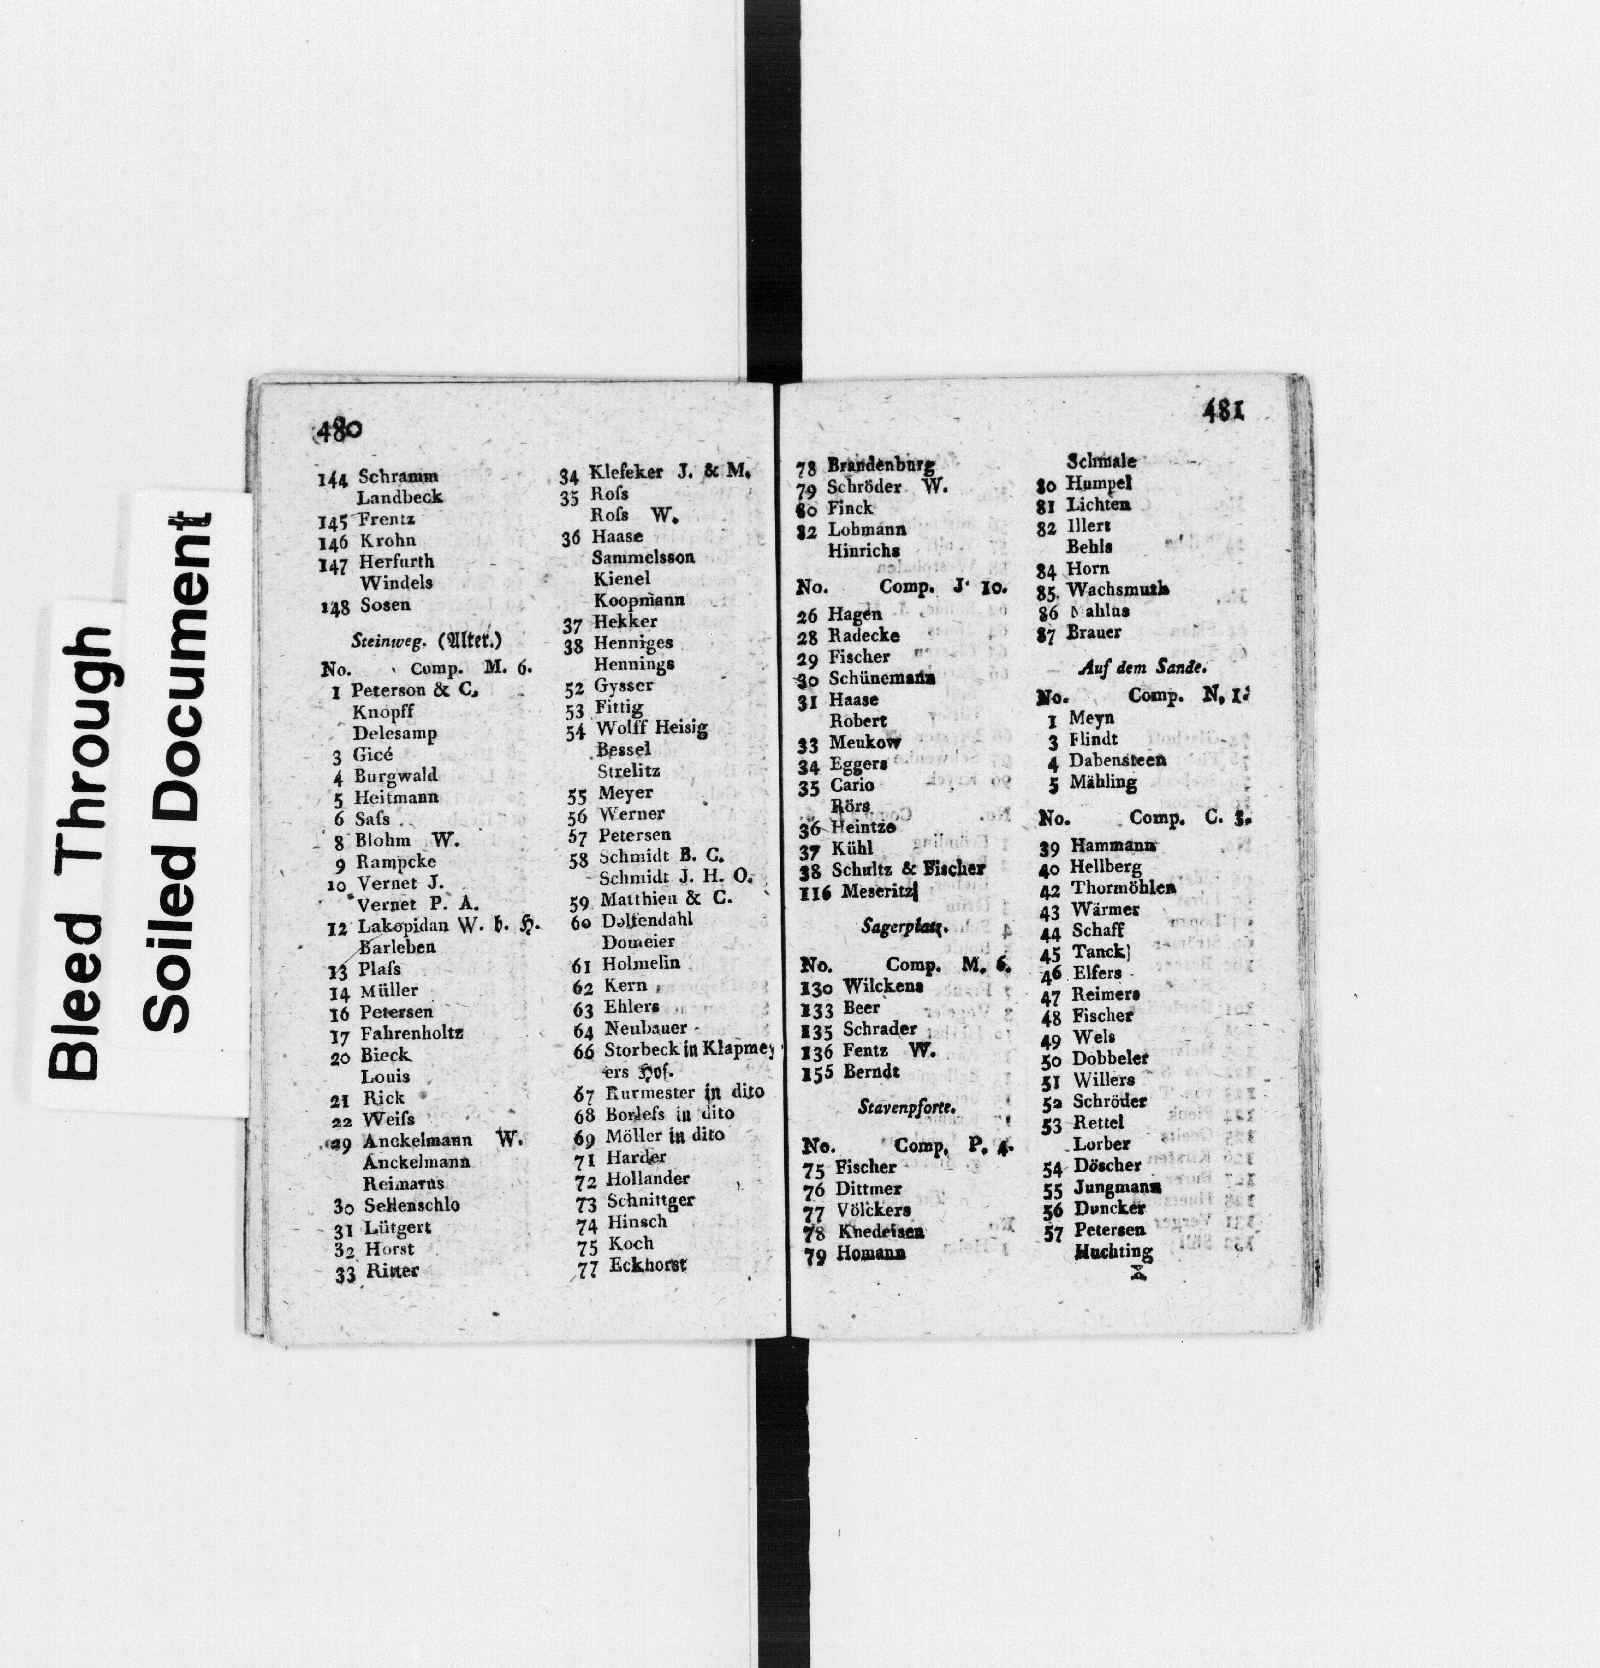 Bleed Through
Soiled Document
480
144 Schramm
Landbeck
145 Frentz
146 Krohn
147 Herfurth
Windels
148 Sosen
Steinweg. (Alter.)
No. Comp. M. 6.
1 Peterson & C.
Knopff
Delesamp
3 Gicé
4 Burgwald
5 Heitmann
6 Saſs
8 Blohm W.
9 Rampcke
10 Vernet J.
Vernet P. A.
12 Lakopidan W. b. H.
Barleben
13 Plaſs
14 Müller
16 Petersen
17 Fahrenholtz
20 Bieck
Louis
21 Rick
22 Weiſs
29 Anckelmann W.
Anckelmann
Reimarus
30 Sellenschlo
31 Lütgert
32 Horst
33 Ritter
34 Klefeker J. & M.
35 Roſs
Roſs W.
36 Haase
Sammelsson
Kienel
Koopmann
37 Hekker
38 Henniges
Hennings
52 Gysser
53 Fittig
54 Wolff Heisig
Bessel
Strelitz
55 Meyer
56 Werner
57 Petersen
58 Schmidt B. C.
Schmidt J. H. O.
59 Matthieu & C.
60 Doltendahl
Domeier
61 Holmelin
62 Kern
63 Ehlers
64 Neubauer
66 Storbeck in Klapmey
ers Hof.
67 Kurmester in dito
68 Borleſs in dito
69 Möller in dito
71 Harder
72 Hollander
73 Schnittger
74 Hinsch
75 Koch
77 Eckhorst
481
78 Brandenburg
79 Schröder W.
80 Finck
82 Lohmann
Hinrichs
No. Comp. J. 10.
26 Hagen
28 Radecke
29 Fischer
30 Schünemann
31 Haase
Robert
33 Meukow
34 Eggers
35 Cario
Rörs
36 Heintze
37 Kühl
38 Schultz & Fischer
116 Meseritz
Sagerplatz.
No. Comp. M. 6.
130 Wilckens
133 Beer
135 Schrader
136 Fentz W.
155 Berndt
Stavenpforte.
No. Comp. P. 4.
75 Fischer
76 Dittmer
77 Völckers
78 Knedeisen
79 Homann
Schmale
80 Humpel
81 Lichten
82 Illert
Behls
84 Horn
85 Wachsmuth
86 Mahlus
87 Brauer
Auf dem Sande.
No. Comp. N. 1.
1 Meyn
3 Flindt
4 Dabensteen
5 Mähling
No. Comp. C. 3.
39 Hammann
40 Hellberg
42 Thormöhlen
43 Wärmer
44 Schaff
45 Tanck
46 Elfers
47 Reimers
48 Fischer
49 Wels
50 Dobbeler
51 Willers
52 Schröder
53 Rettel
Lorber
54 Döscher
55 Jungmann
56 Duncker
57 Petersen
Huchting